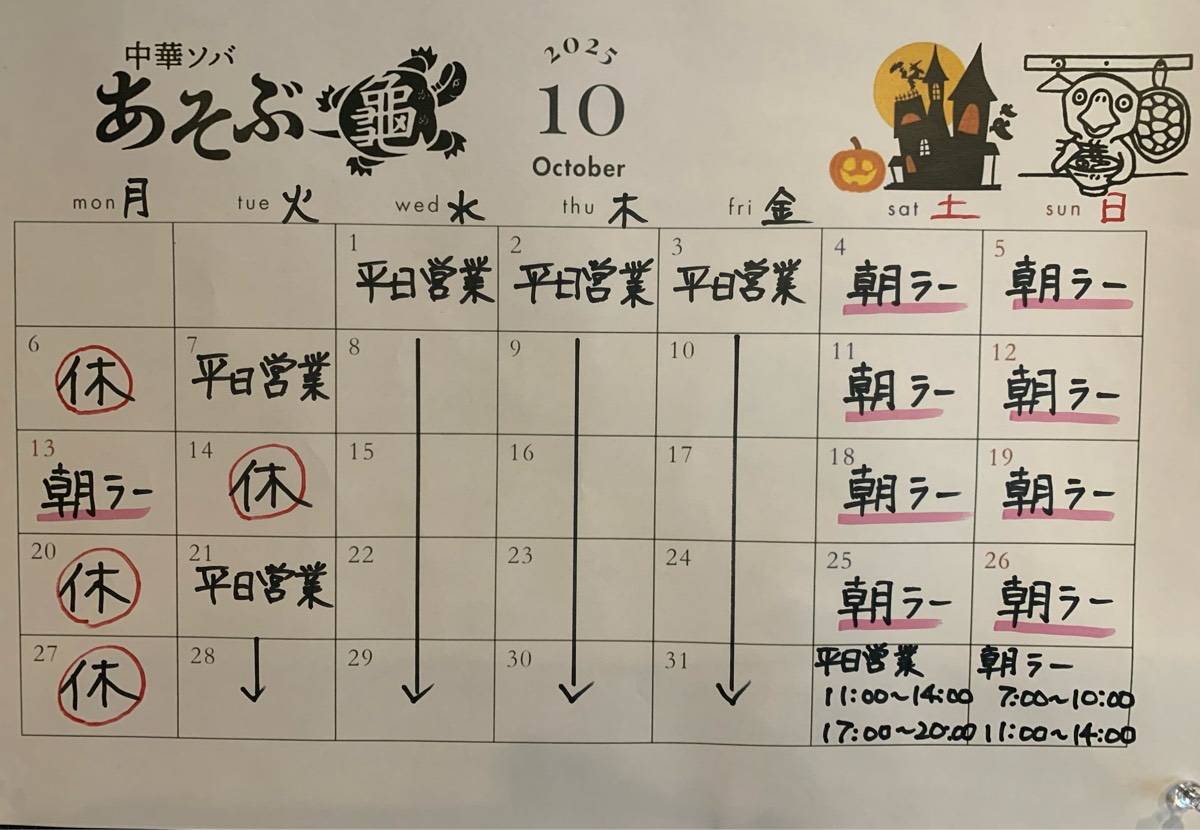 中華ソバ
あそぶ 龜
かめ
2025
10
October
mon 月 tue 火 wed 水 thu 木 fri 金 sat 土 sun 日
1 2 3 4 5
平日営業 平日営業 平日営業 朝ラー 朝ラー
6 7 8 9 10 11 12
休 平日営業 朝ラー 朝ラー
13 14 15 16 17 18 19
朝ラー 休 朝ラー 朝ラー
20 21 22 23 24 25 26
休 平日営業 朝ラー 朝ラー
27 28 29 30 31
休
平日営業
11:00~14:00
17:00~20:00
朝ラー
7:00~10:00
11:00~14:00